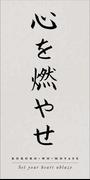 心を燃やせ
KOKORO・WO・MOYASE
Set your heart ablaze